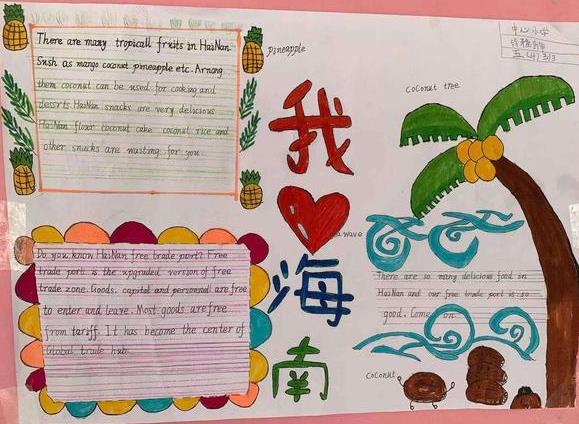 There are many tropicall fruits in HaiNan
Sush as mango coconut pineapple etc. Among
them coconut can be used for cooking and
desserts HaiNan snacks are very delicious
HaiNan flour coconut cake coconut rice and
other snacks are waiting for you
pineapple
我
海
南
Do you know HaiNan free trade port? Free
trade port is the upgraded version of free
trade zone. Goods, capital and personnal are free
to enter and leave. Most goods are free
from tariff. It has become the center of
trade hub.
中心小学
coconut tree
wave
There are so many delicious food in
HaiNan and our free trade port is so
good. Come on
coconut